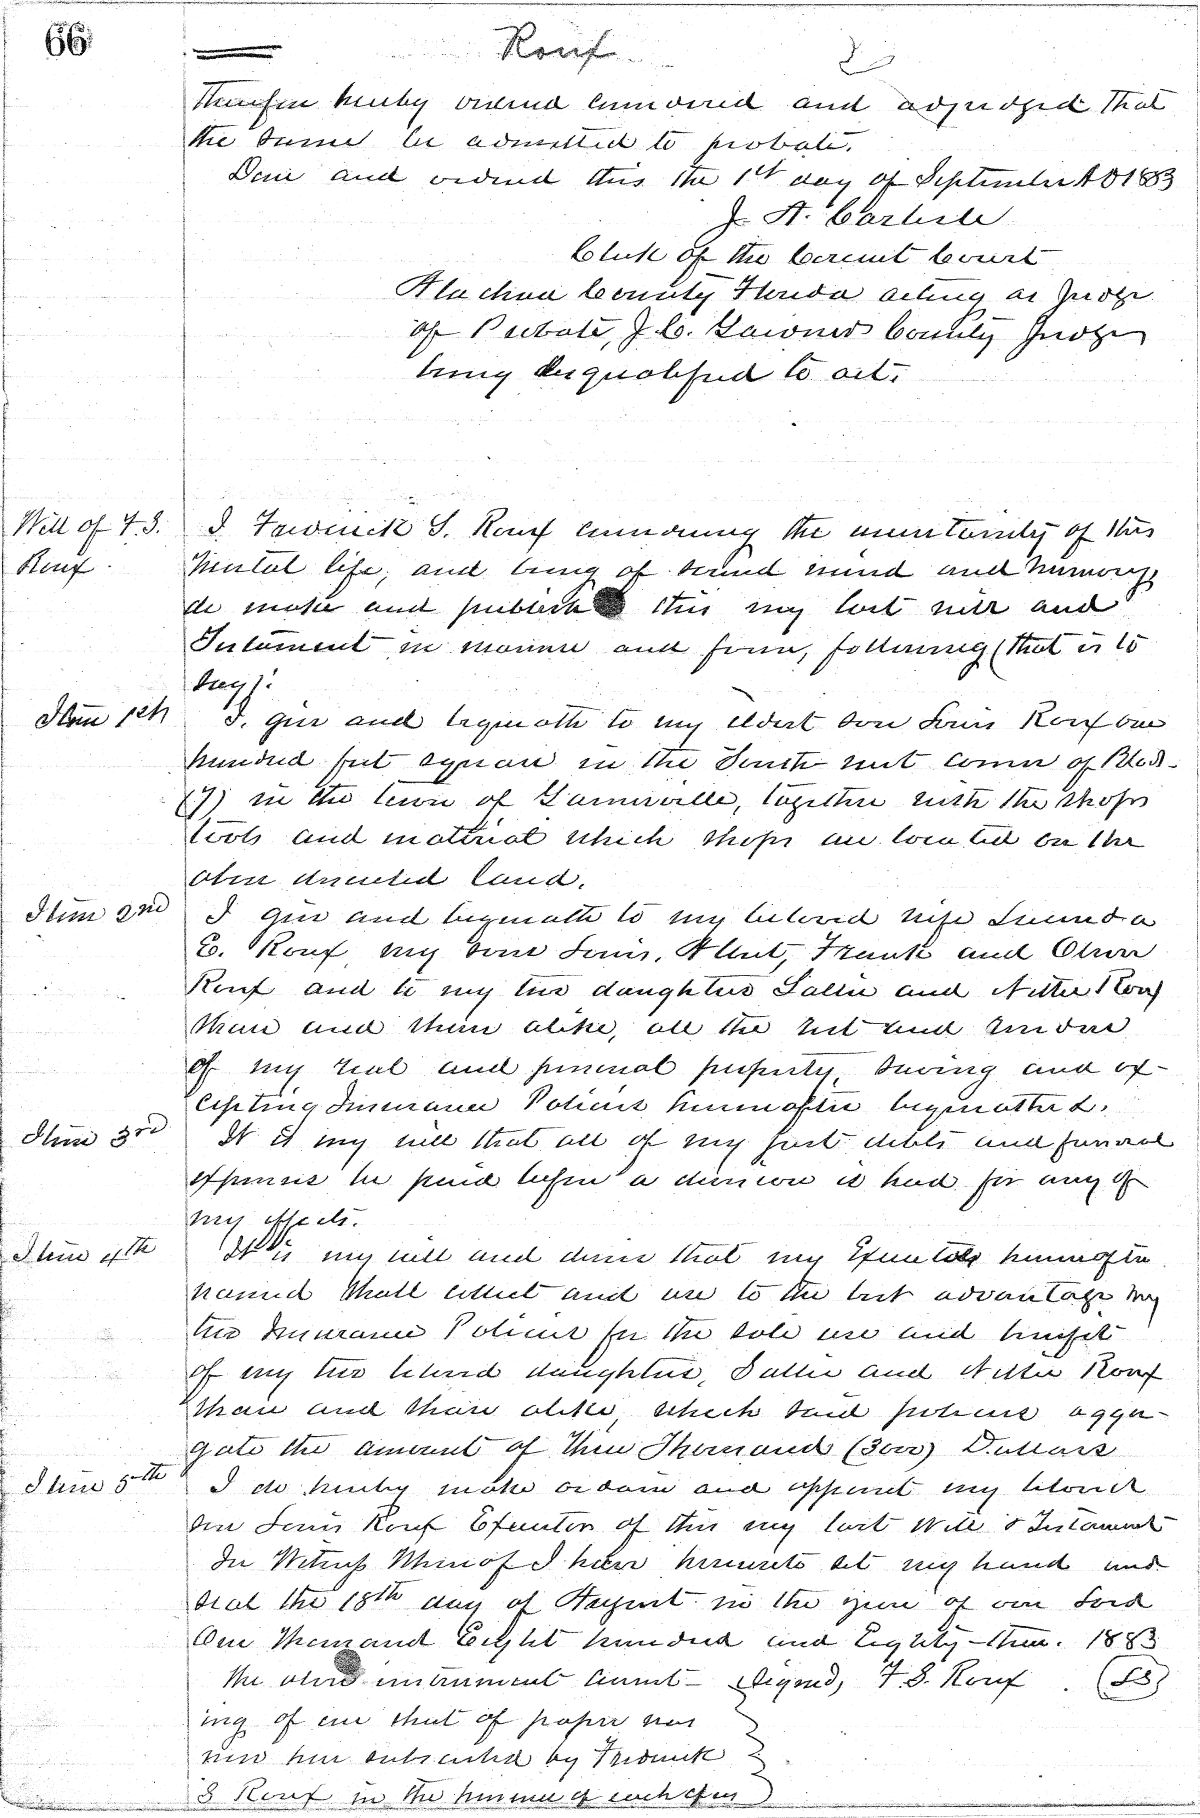 66
Rouf
2
therefore hereby ordered considered and adjudged that
the same be admitted to probate.
Done and ordered this the 1st day of September A D 1883
J. A. Carlisle
Clerk of the Circuit Court
Alachua County Florida acting as Judge
of Probate, J. C. Gardner County Judge
being disqualified to act.
Will of F. S.
Rouf.
I Frederick S. Rouf considering the uncertainty of this
mortal life, and being of sound mind and memory,
do make and publish this my last will and
Testament in manner and form, following (that is to
say):
Item 1th
I. give and bequeath to my eldest son Louis Rouf one
hundred feet square in the South west corner of Block
(7) in the town of Gainesville, together with the shops
tools and material which shops are located on the
above described land.
Item 2nd
I give and bequeath to my beloved wife Lucinda
E. Rouf, my sons Louis, Albert, Frank and Oliver
Rouf and to my two daughters Sallie and Nettie Rouf
share and share alike, all the rest and residue
of my real and personal property, saving and ex-
cepting Insurance Policies hereinafter bequeathed.
Item 3rd
It is my will that all of my just debts and funeral
expenses be paid before a division is had for any of
my effects.
Item 4th
It is my will and desire that my Executor hereinafter
named shall collect and use to the best advantage my
two Insurance Policies for the sole use and benefit
of my two beloved daughters, Sallie and Nettie Rouf
share and share alike, which said policies aggre-
gate the amount of Three Thousand (3000) Dollars
Item 5th
I do hereby make ordain and appoint my beloved
son Louis Rouf Executor of this my last Will & Testament
In Witness Whereof I have hereunto set my hand and
seal the 18th day of August in the year of our Lord
One Thousand Eight hundred and Eighty-three. 1883
The above instrument consist- signed, F. S. Rouf. (LS)
ing of one sheet of paper was
now here subscribed by Frederick
S Rouf in the presence of each of us